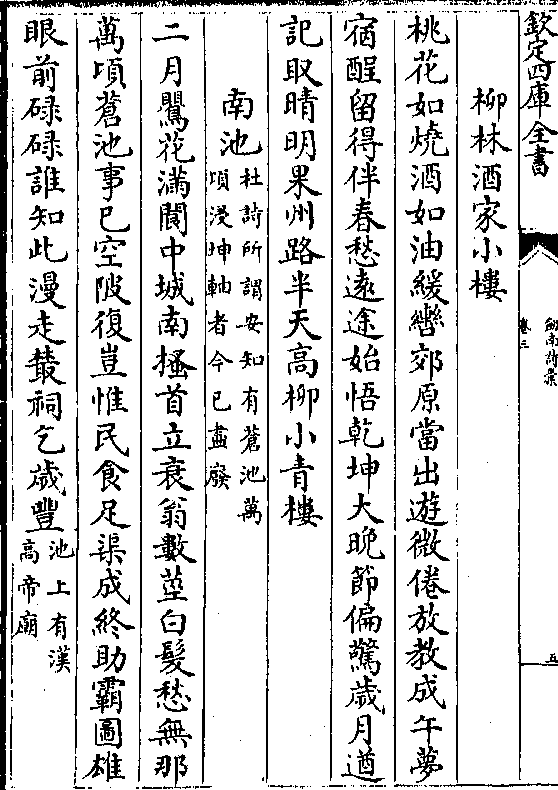 欽定四庫全書
劒南詩藁
卷三
五
柳林酒家小樓
桃花如燒酒如油緩轡郊原當出遊微倦放教成午夢
宿酲留得伴春愁逺途始悟乾坤大晚節偏驚歲月遒
記取晴明果州路半天高柳小青樓
南池杜詩所謂安知有蒼池萬
頃浸坤軸者今已盡廢
二月鸎花滿閬中城南搔首立衰翁數莖白髮愁無那
萬頃蒼池事已空陂復豈惟民食足渠成終助霸圖雄
眼前碌碌誰知此漫走叢祠乞歲豐池上有漢
高帝廟